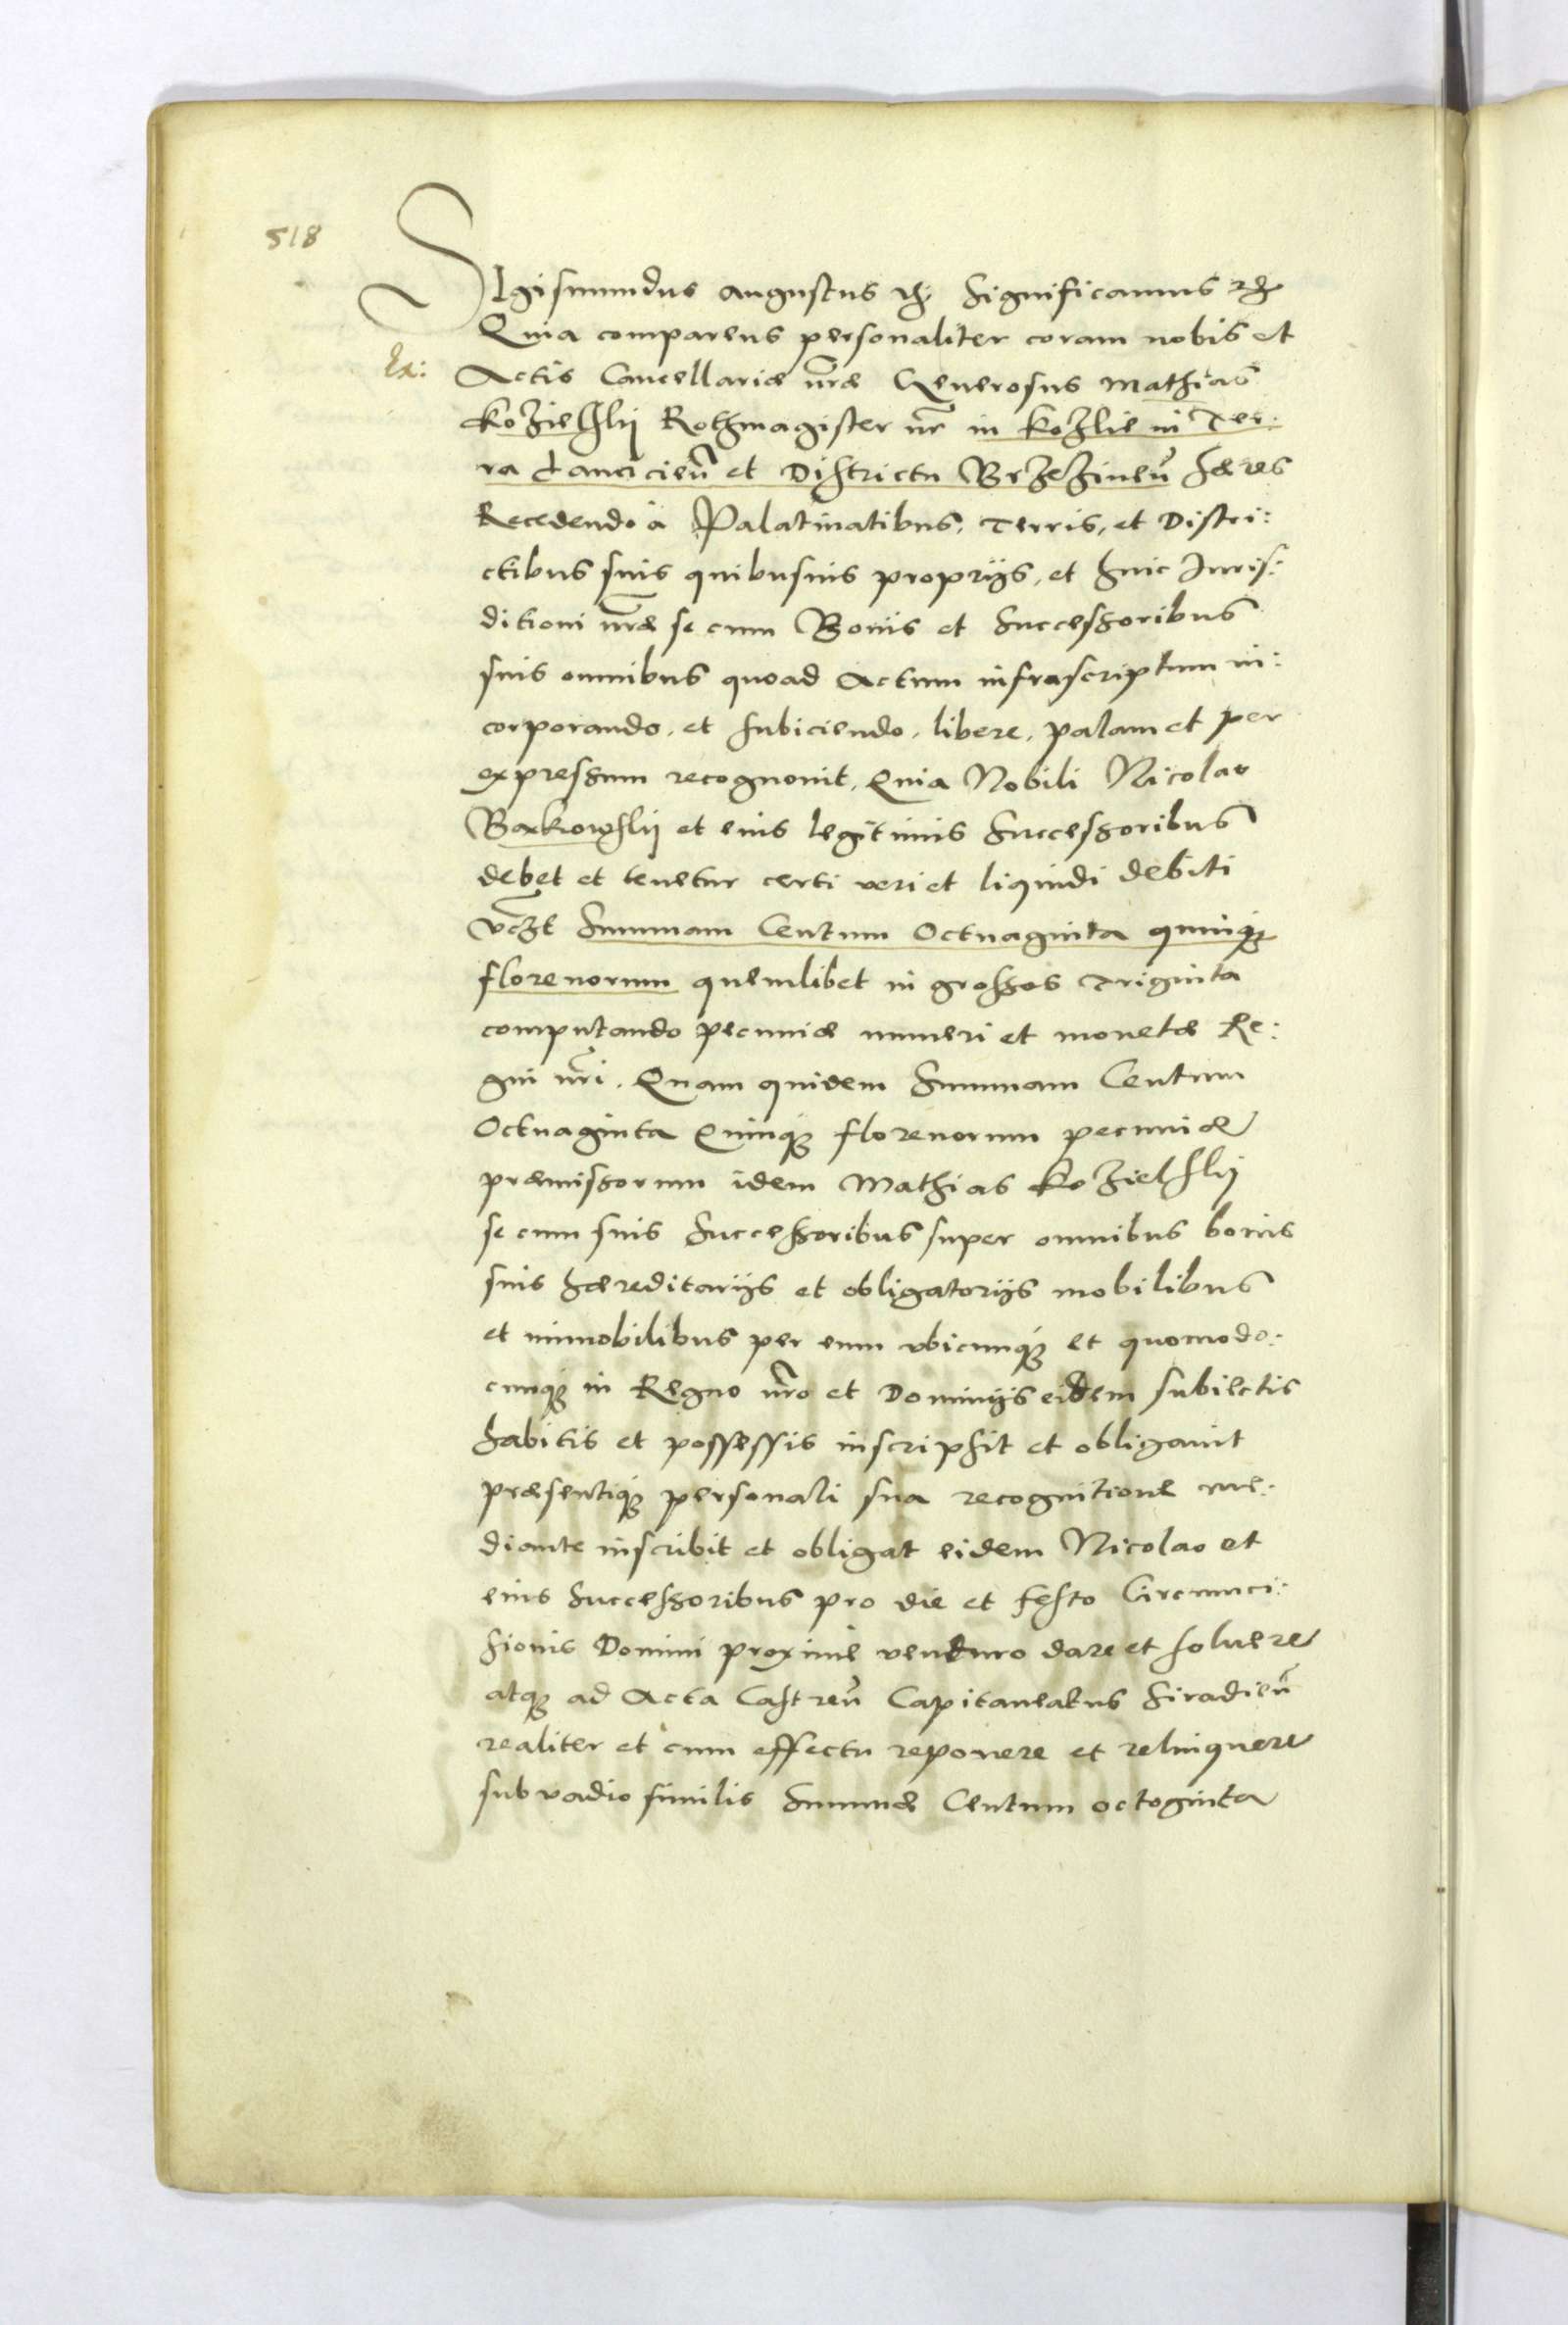 518
SIgismundus Augustus etc. Significamus etc.
Quia comparens personaliter coram nobis et
Ex:
Actis Cancellariæ nr̃æ Generosus Mathias
Kozielskij Rothmagister nr̃ in Kozlie in Ter:
ra Lancicien̄ et Districtu Brzezinen̄ hæres
Recedendo à Palatinatibus, Terris, et Distri:
ctibus suis quibusuis proprijs, et huic Iuris:
ditioni nr̃æ se cum Bonis et Successoribus
suis omnibus quoad Actum infrascriptum in:
corporando, et subiciendo, libere, palam et per
expressum recognouit, Quia Nobili Nicolao
Barkowskij et eius legitimis Successoribus
debet et tenetur certi veri et liquidi debiti
vczt Summam Centum Octuaginta quinq;
florenorum quemlibet in grossos Triginta
computando pecuniæ numeri et monetæ Re:
gni nr̃i. Quam quidem Summam Centum
Octuaginta Quinq; florenorum pecuniæ
præmissorum idem Mathias Kozielskij
se cum suis Successoribus super omnibus bonis
suis hæreditarijs et obligatorijs mobilibus
et immobilibus per eum vbicunq; et quomodo:
cunq; in Regno nr̃o et Dominijs eidem subiectis
habitis et possessis inscripsit et obligauit
præsentiq; personali sua recognitione me:
diante inscribit et obligat eidem Nicolao et
eius Successoribus pro die et festo Circumci:
sionis Domini proxime venturo dare et soluere
atq; ad Acta Castren̄ Capitaneatus Siradien̄
realiter et cum effectu reponere et relinquere
sub vadio similis Summæ Centum octoginta